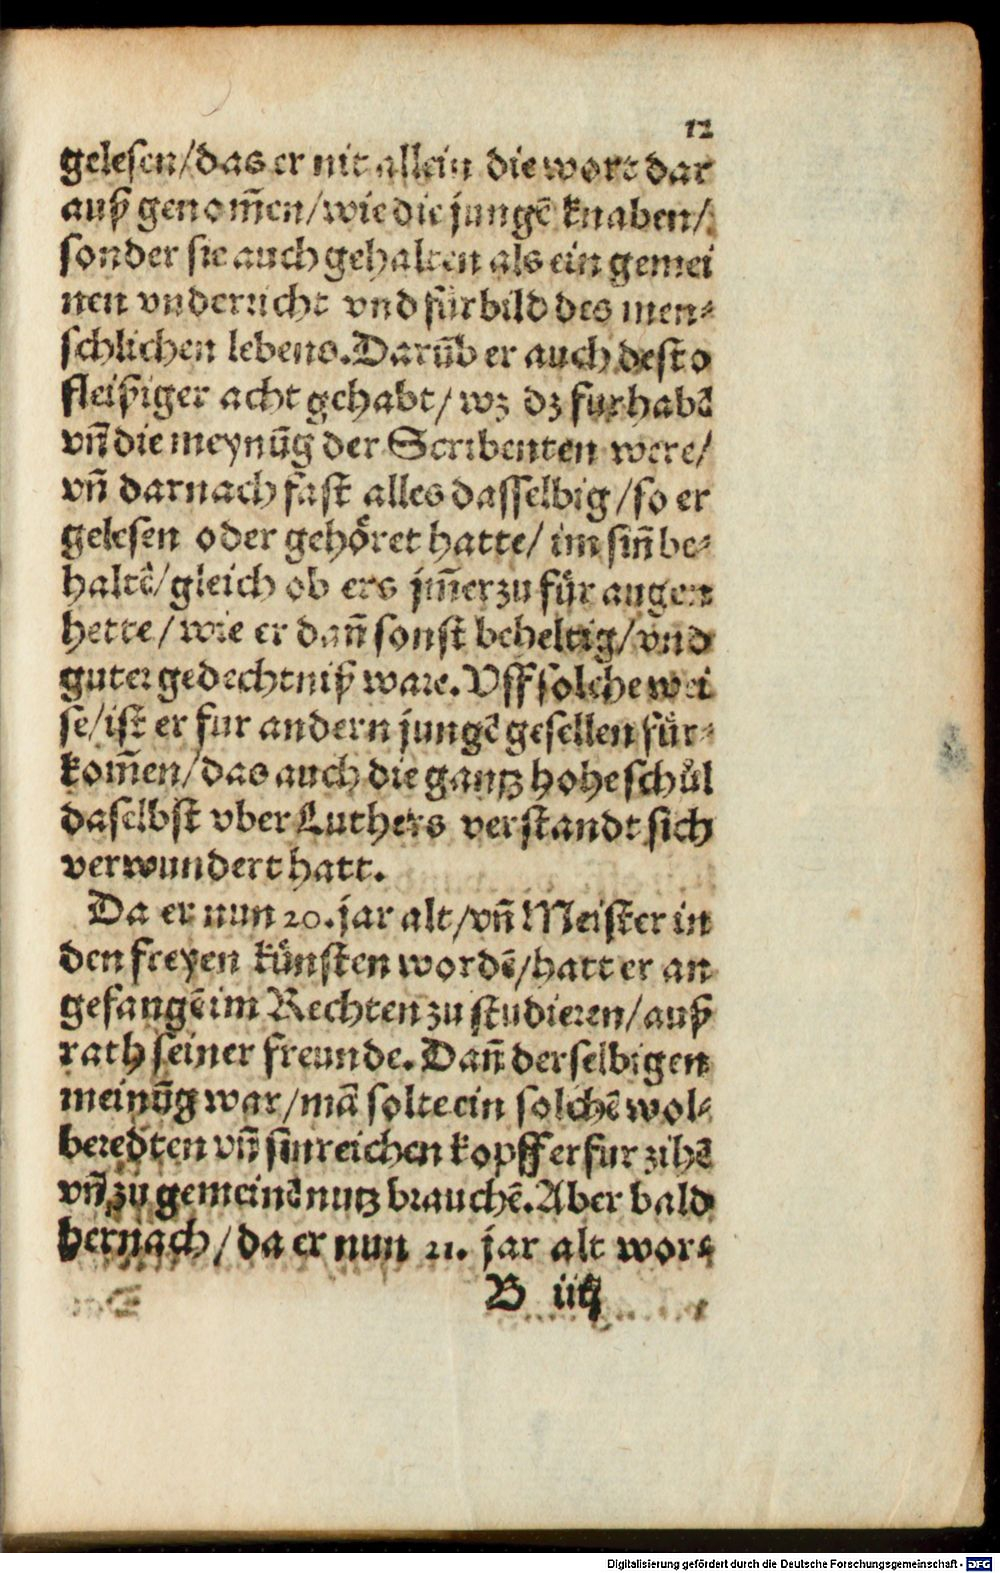 12
gelesen/das er nit allein die wort dar
auß genom̄en/wie die jungē knaben/
sonder sie auch gehalten als ein gemei
nen vnderricht vnd fürbild des men⸗
schlichen lebens. Darūb er auch desto
fleißiger acht gehabt/ wz dz furhabē
vn̄ die meynūg der Scribenten were/
vn̄ darnach fast alles dasselbig/so er
gelesen oder gehöret hatte/ im sin̄ be⸗
haltē/gleich ob ers jm̄erzu für augen
hette/wie er dan̄ sonst beheltig/vnd
guter gedechtniß ware. Vff solche wei
se/ist er fur andern jungē gesellen für⸗
kom̄en/das auch die gantz hohe schůl
daselbst vber Luthers verstandt sich
verwundert hatt.
Da er nun 20. jar alt/vn̄ Meister in
den freyen künsten wordē/hatt er an
gefangē im Rechten zu studieren/auß
rath seiner freunde. Dan̄ derselbigen
meinūg war/mā solte ein solchē wol⸗
beredten vn̄ sinreichen kopff erfur zihē
vn̄ zu gemeinē nutz brauchē. Aber bald
hernach/da er nun 21. jar alt wor⸗
B iiij
Digitalisierung gefördert durch die Deutsche Forschungsgemeinschaft - DFG